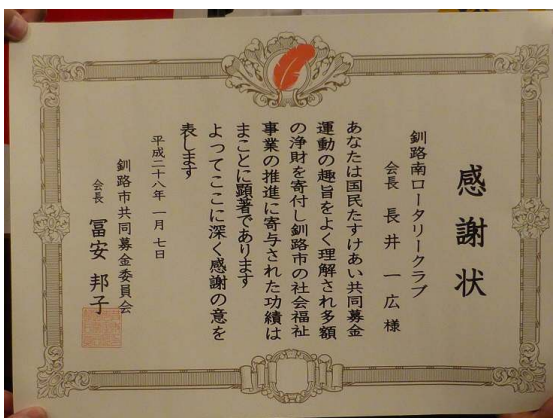 感謝状
釧路南ロータリークラブ
会長 長井一広様
あなたは国民たすけあい共同募金
運動の趣旨をよく理解され多額
の浄財を寄付し釧路市の社会福祉
事業の推進に寄与された功績は
まことに顕著であります
よってここに深く感謝の意を
表します
平成二十八年一月七日
釧路市共同募金委員会
会長 冨安邦子